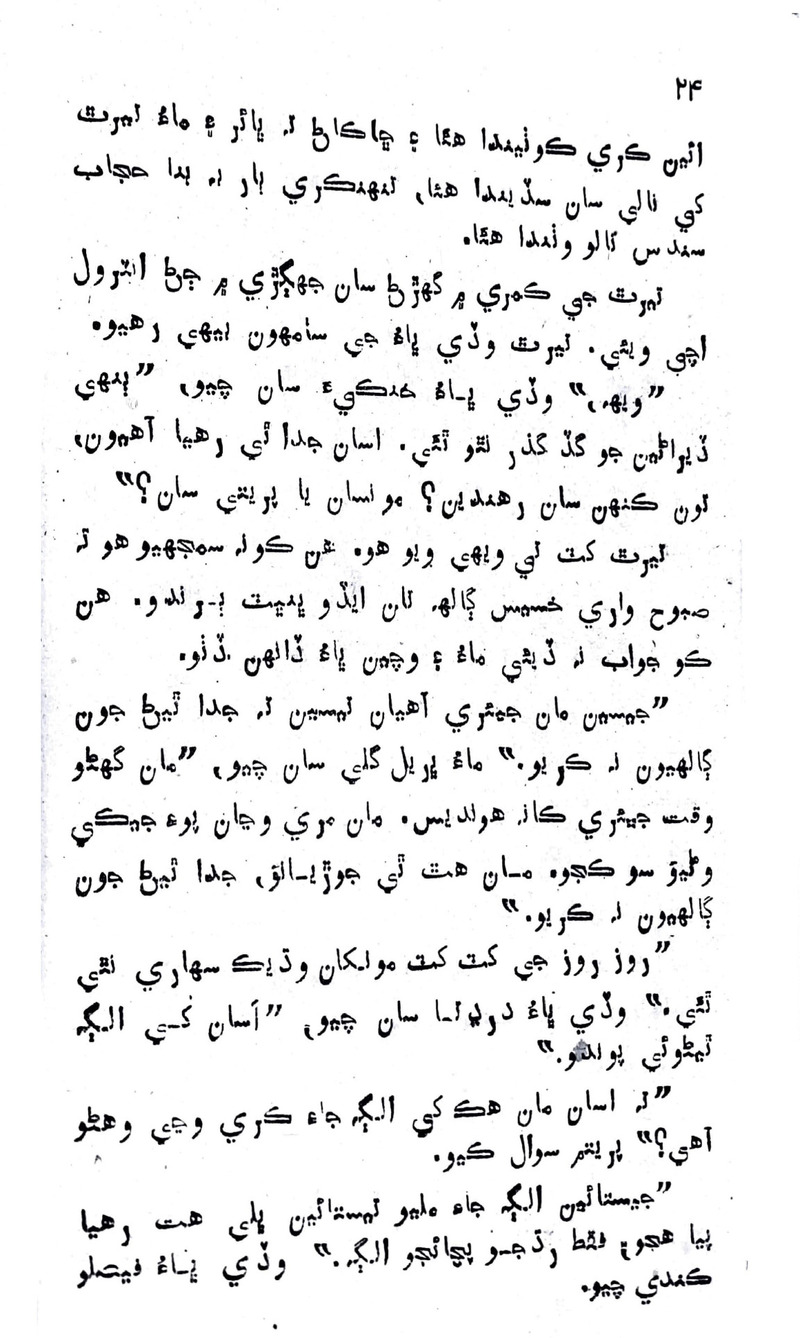 ۲۴
ائين ڪري ڪوٺيندا هئا ۽ ڇاڪاڻ تہ ڀائر ۽ ماءُ تيرٿ
کي نالي سان سڏيندا هئا، تنهنڪري ٻار بہ بنا حجاب
سندس نالو وٺندا هئا.
تيرٿ جي ڪمري ۾ گهڙڻ سان جهڳڙي ۾ ڄڻ انٽرول
اچي ويئي. تيرٿ وڏي ڀاءُ جي سامهون بيهي رهيو.
”ويهہ،“ وڏي ڀاءُ خنڪيءَ سان چيو، ”ٻنهي
ڏيراڻين جو گڏ گذر نٿو ٿئي. اسان جدا ٿي رهيا آهيون،
تون ڪنهن سان رهندين؟ مونسان يا پريتمي سان؟“
تيرٿ کٽ تي ويهي ويو هو. هن ڪونہ سمجهيو هو تہ
صبوح واري خسيس ڳالهہ تان ايڏو ڀنڀٽ ٻرندو. هن
ڪو جواب نہ ڏيئي ماءُ ۽ وچين ڀاءُ ڏانهن ڏٺو.
”جيسين مان جيئري آهيان تيسين تہ جدا ٿيڻ جون
ڳالهيون نہ ڪريو.“ ماءُ ڀريل گلي سان چيو، ”مان گهڻو
وقت جيئري ڪانہ هونديس. مان مري وڃان پوءِ جيڪي
وڻيوَ سو ڪجو. مان هٿ ٿي جوڙيانوَ، جدا ٿيڻ جون
ڳالهيون نہ ڪريو.“
”روز روز جي کٽ کٽ مونکان وڌيڪ سهاري نٿي
ٿئي.“ وڏي ڀاءُ درڙتا سان چيو، ”اسان کي الڳہ
ٿيڻوئي پوندو.“
”تہ اسان مان هڪ کي الڳہ جاءِ ڪري وڃي وهڻو
آهي؟“ پريتم سوال ڪيو.
”جيستائين الڳہ جاءِ مليو تيستائين ڀلي هت رهيا
پيا هجو، فقط رڌجو پچائجو الڳہ.“ وڏي ڀاءُ فيصلو
ڪندي چيو.